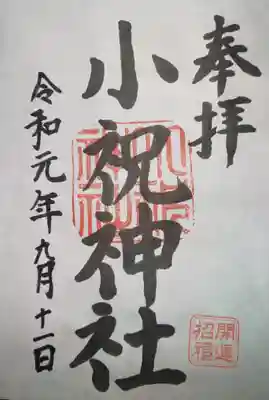 奉拝
小祝神社
令和元年九月十一日
開運
招福